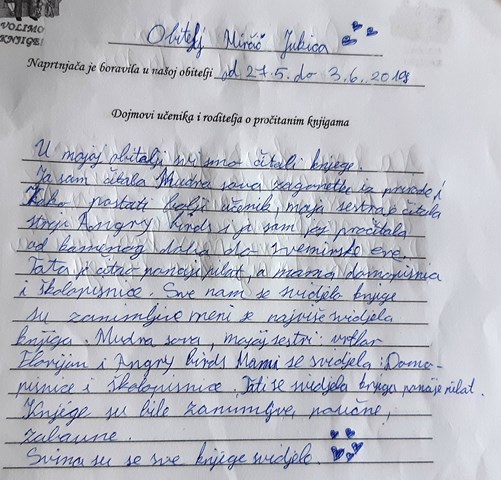 VOLIMO
KNJIGE!
Obitelj Mirčić Jubica
Naprtnjača je boravila u našoj obitelji od 27.5. do 3.6.2019
Dojmovi učenika i roditelja o pročitanim knjigama
U mojoj obitelji svi smo čitali knjige.
Ja sam čitala Mudra sova zagonetke iz prirode i
Kako postati bolji učenik, moja sestra je čitala
strip Angry birds i ja sam joj pročitala
od kamenog doba do svemirske ere.
Tata je čitao pilot, a mama domopisnice
i školopisnice. Sve nam se svidjele knjige
su zanimljive meni se najviše svidjela
knjiga. Mudra sova, mojoj sestri: vrtlar
Florijan i Angry birds Mami se svidjela: Domo-
pisnice i školopisnice. Tati se svidjela knjiga pilot.
Knjige su bile zanimljive, poučne,
zabavne.
Svima su se sve knjige svidjele.